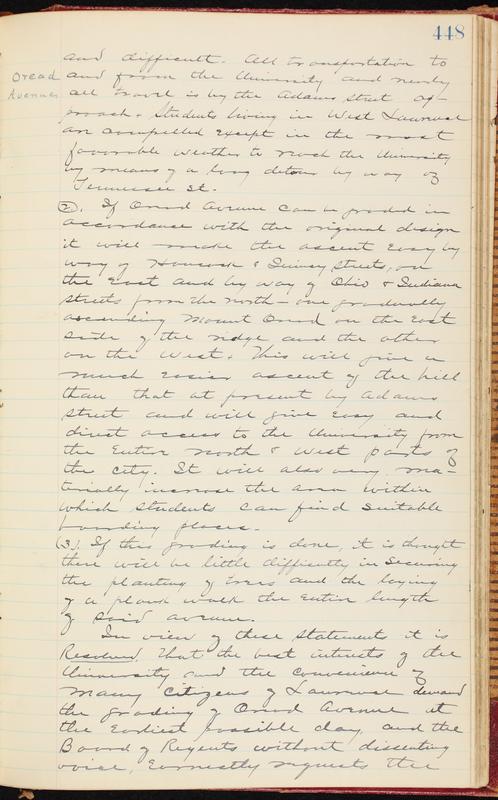 448
and difficult. All transportation to
Oread Avenue
and from the University and nearly
all travel is by the Adams street ap-
proach. Students living in West Lawrence
are compelled except in the most
favorable weather to reach the University
by means of a long detour by way of
Tennessee St.
(2). If Oread Avenue can be graded in
accordance with the original design
it will make the ascent easy by
way of Hancock & Quincy streets, on
the East and by way of Ohio & Indiana
streets from the north - one gradually
ascending Mount Oread on the East
side of the ridge and the other
on the West. This will give a
much easier ascent of the hill
than that at present by Adams
street and will give easy and
direct access to the University from
the entire north & west parts of
the city. It will also very ma-
terially increase the area within
which students can find suitable
boarding places.
(3.) If this grading is done, it is thought
there will be little difficulty in securing
the planting of trees and the laying
of a plank walk the entire length
of said avenue.
In view of these statements it is
Resolved, That the best interests of the
University and the convenience of
many citizens of Lawrence demand
the grading of Oread Avenue at
the earliest possible day, and the
Board of Regents without dissenting
voice, earnestly requests the